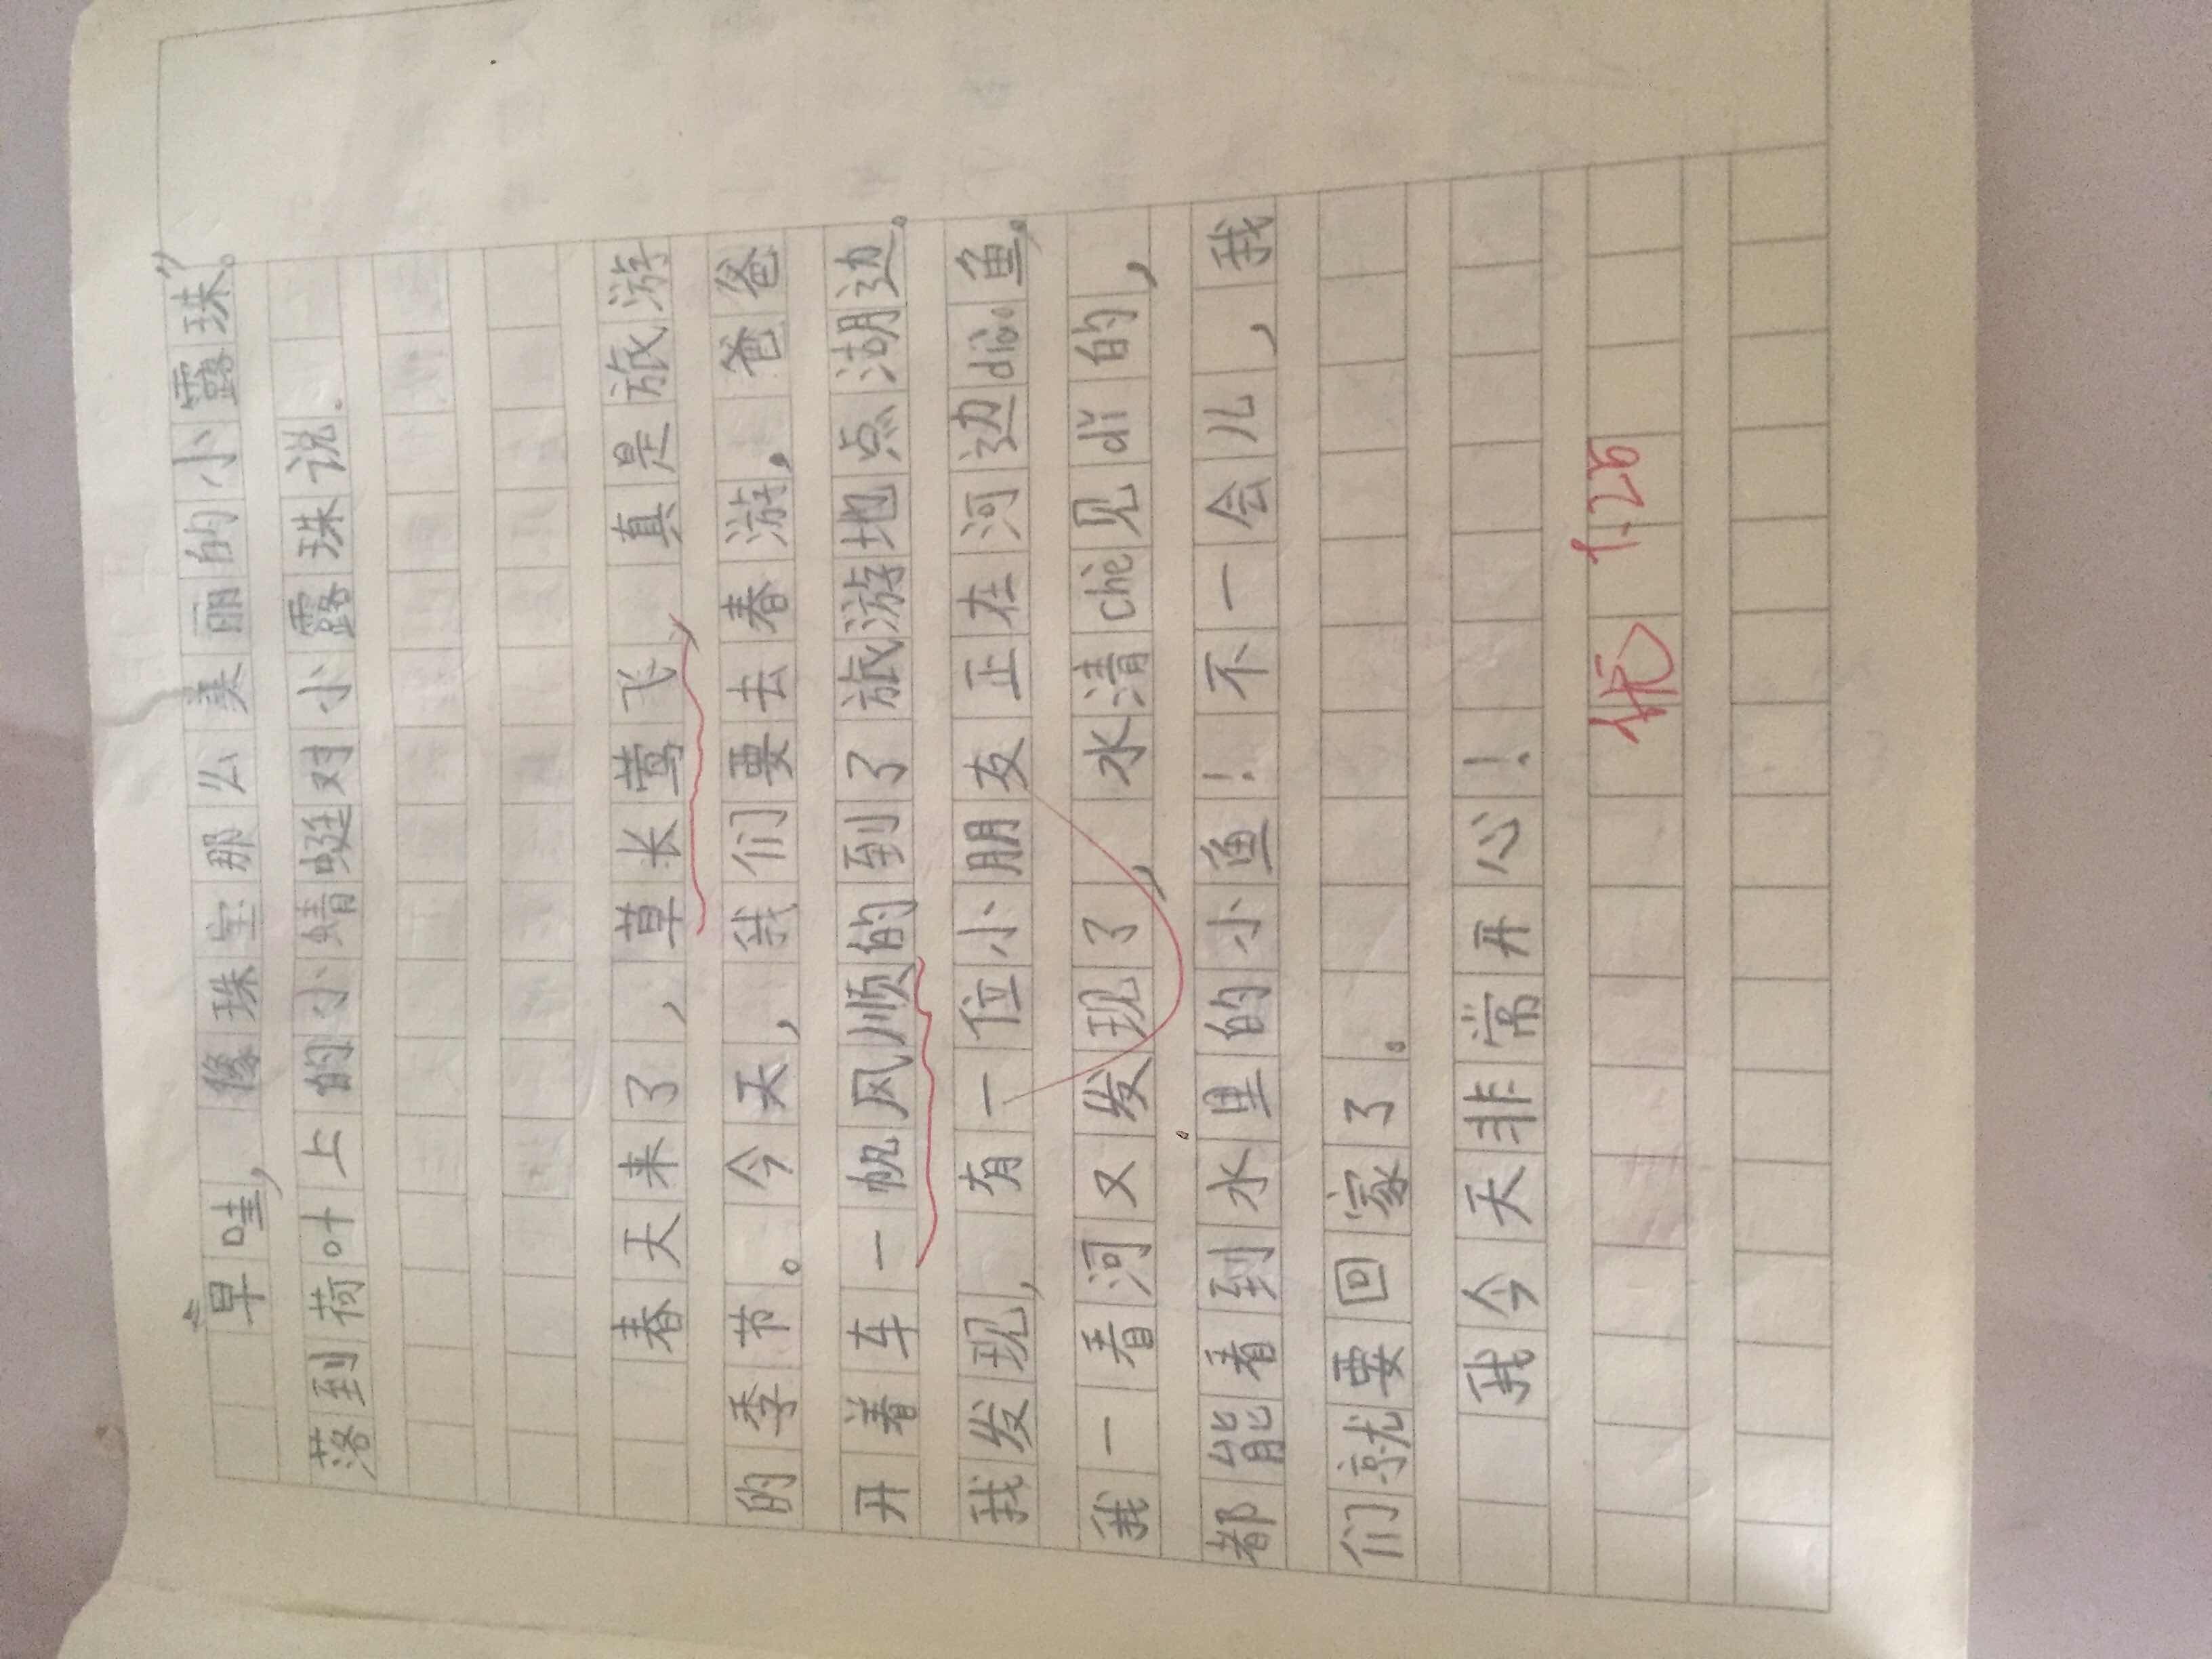 “早哇，像珠宝那么美丽的小露珠”。
落到荷叶上的小蜻蜓对小露珠说.
春天来了，草长莺飞，真是旅游
的季节。今天，我们要去春游，爸爸
开着车一帆风顺的到了旅游地点湖边。
我发现，有一位小朋友正在河边diào鱼。
我一看河又发现了，水清chè见dǐ的，
都能看到水里的小鱼！不一会儿，我
们就要回家了。
我今天非常开心！
优 1.26